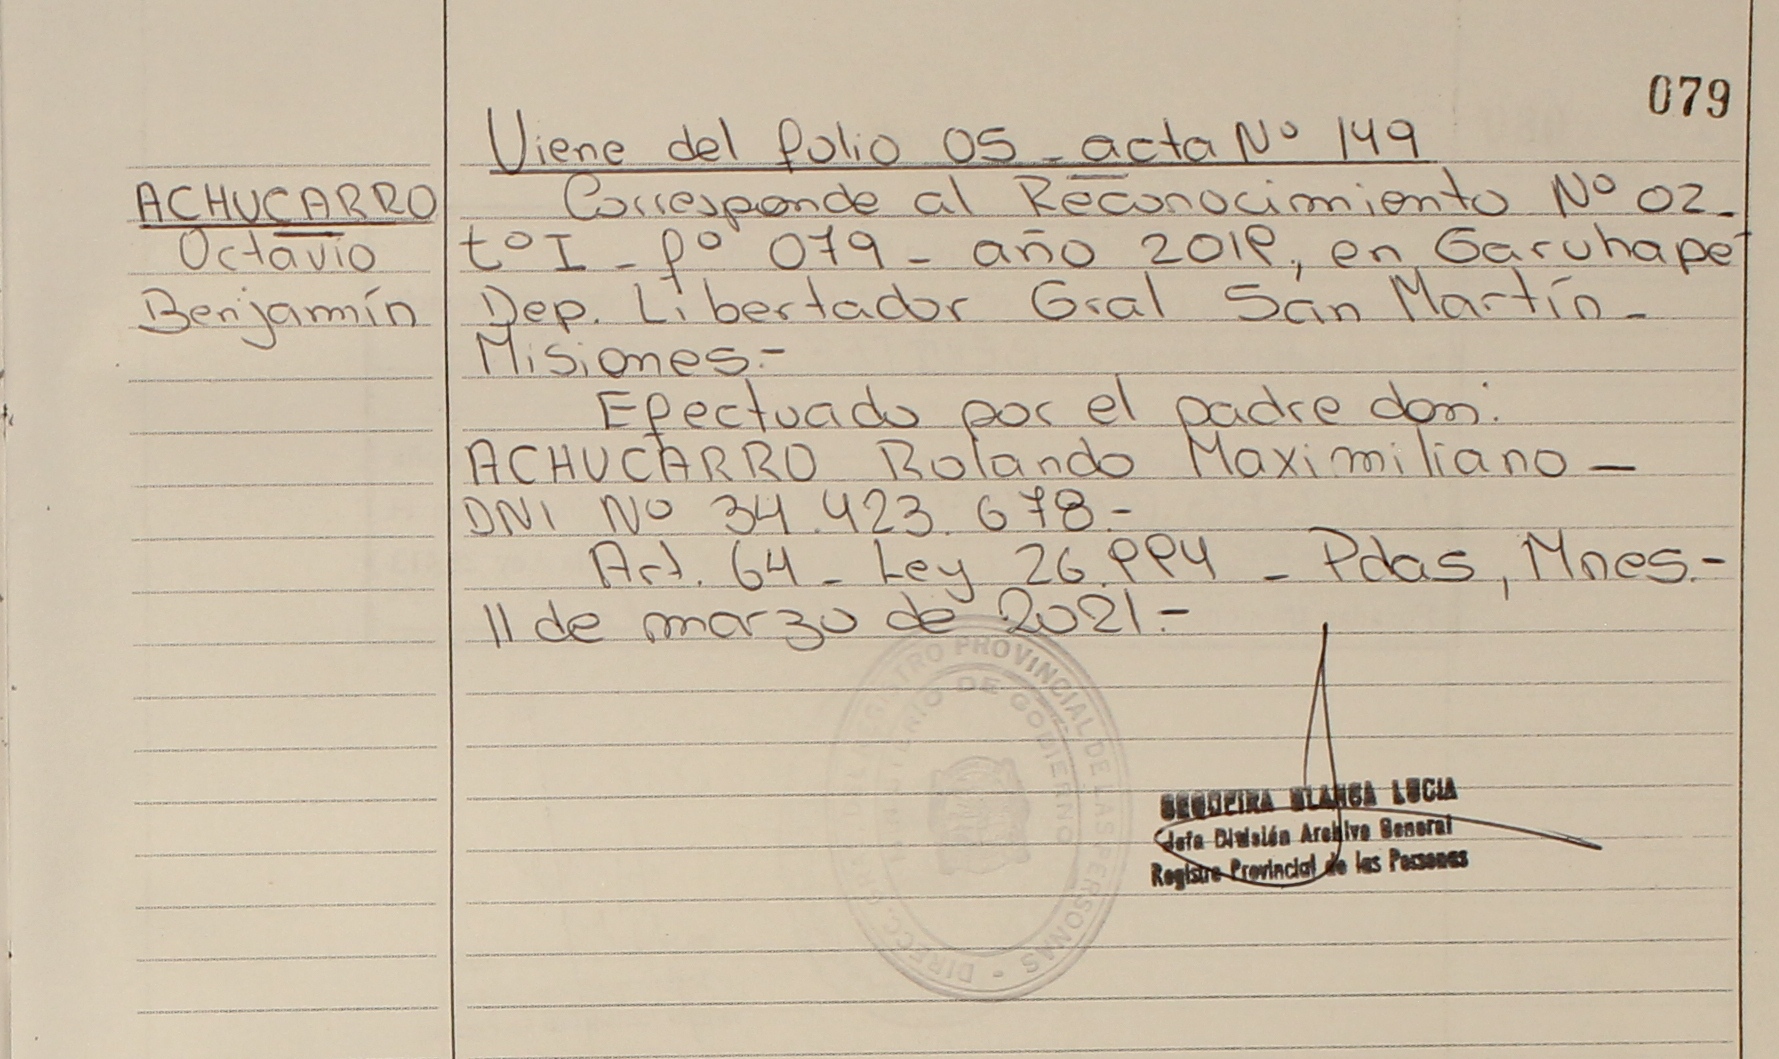 079
Viene del folio 05 - acta Nº 149
ACHUCARRO
Octavio
Benjamín
Corresponde al Reconocimiento Nº 02 -
tº I - fº 079 - año 2018, en Garuhapé
Dep. Libertador Gral San Martín -
Misiones.-
Efectuado por el padre don:
ACHUCARRO Rolando Maximiliano -
DNI Nº 34.423.678.-
Art. 64 - Ley 26.994 - Pdas, Mnes.-
11 de marzo de 2021.-
REGISTRO PROVINCIAL DE LAS PERSONAS - DIRECC.
MINISTERIO DE GOBIERNO
BLANCA LUCIA
Jefe División Archivo General
Registro Provincial de las Personas